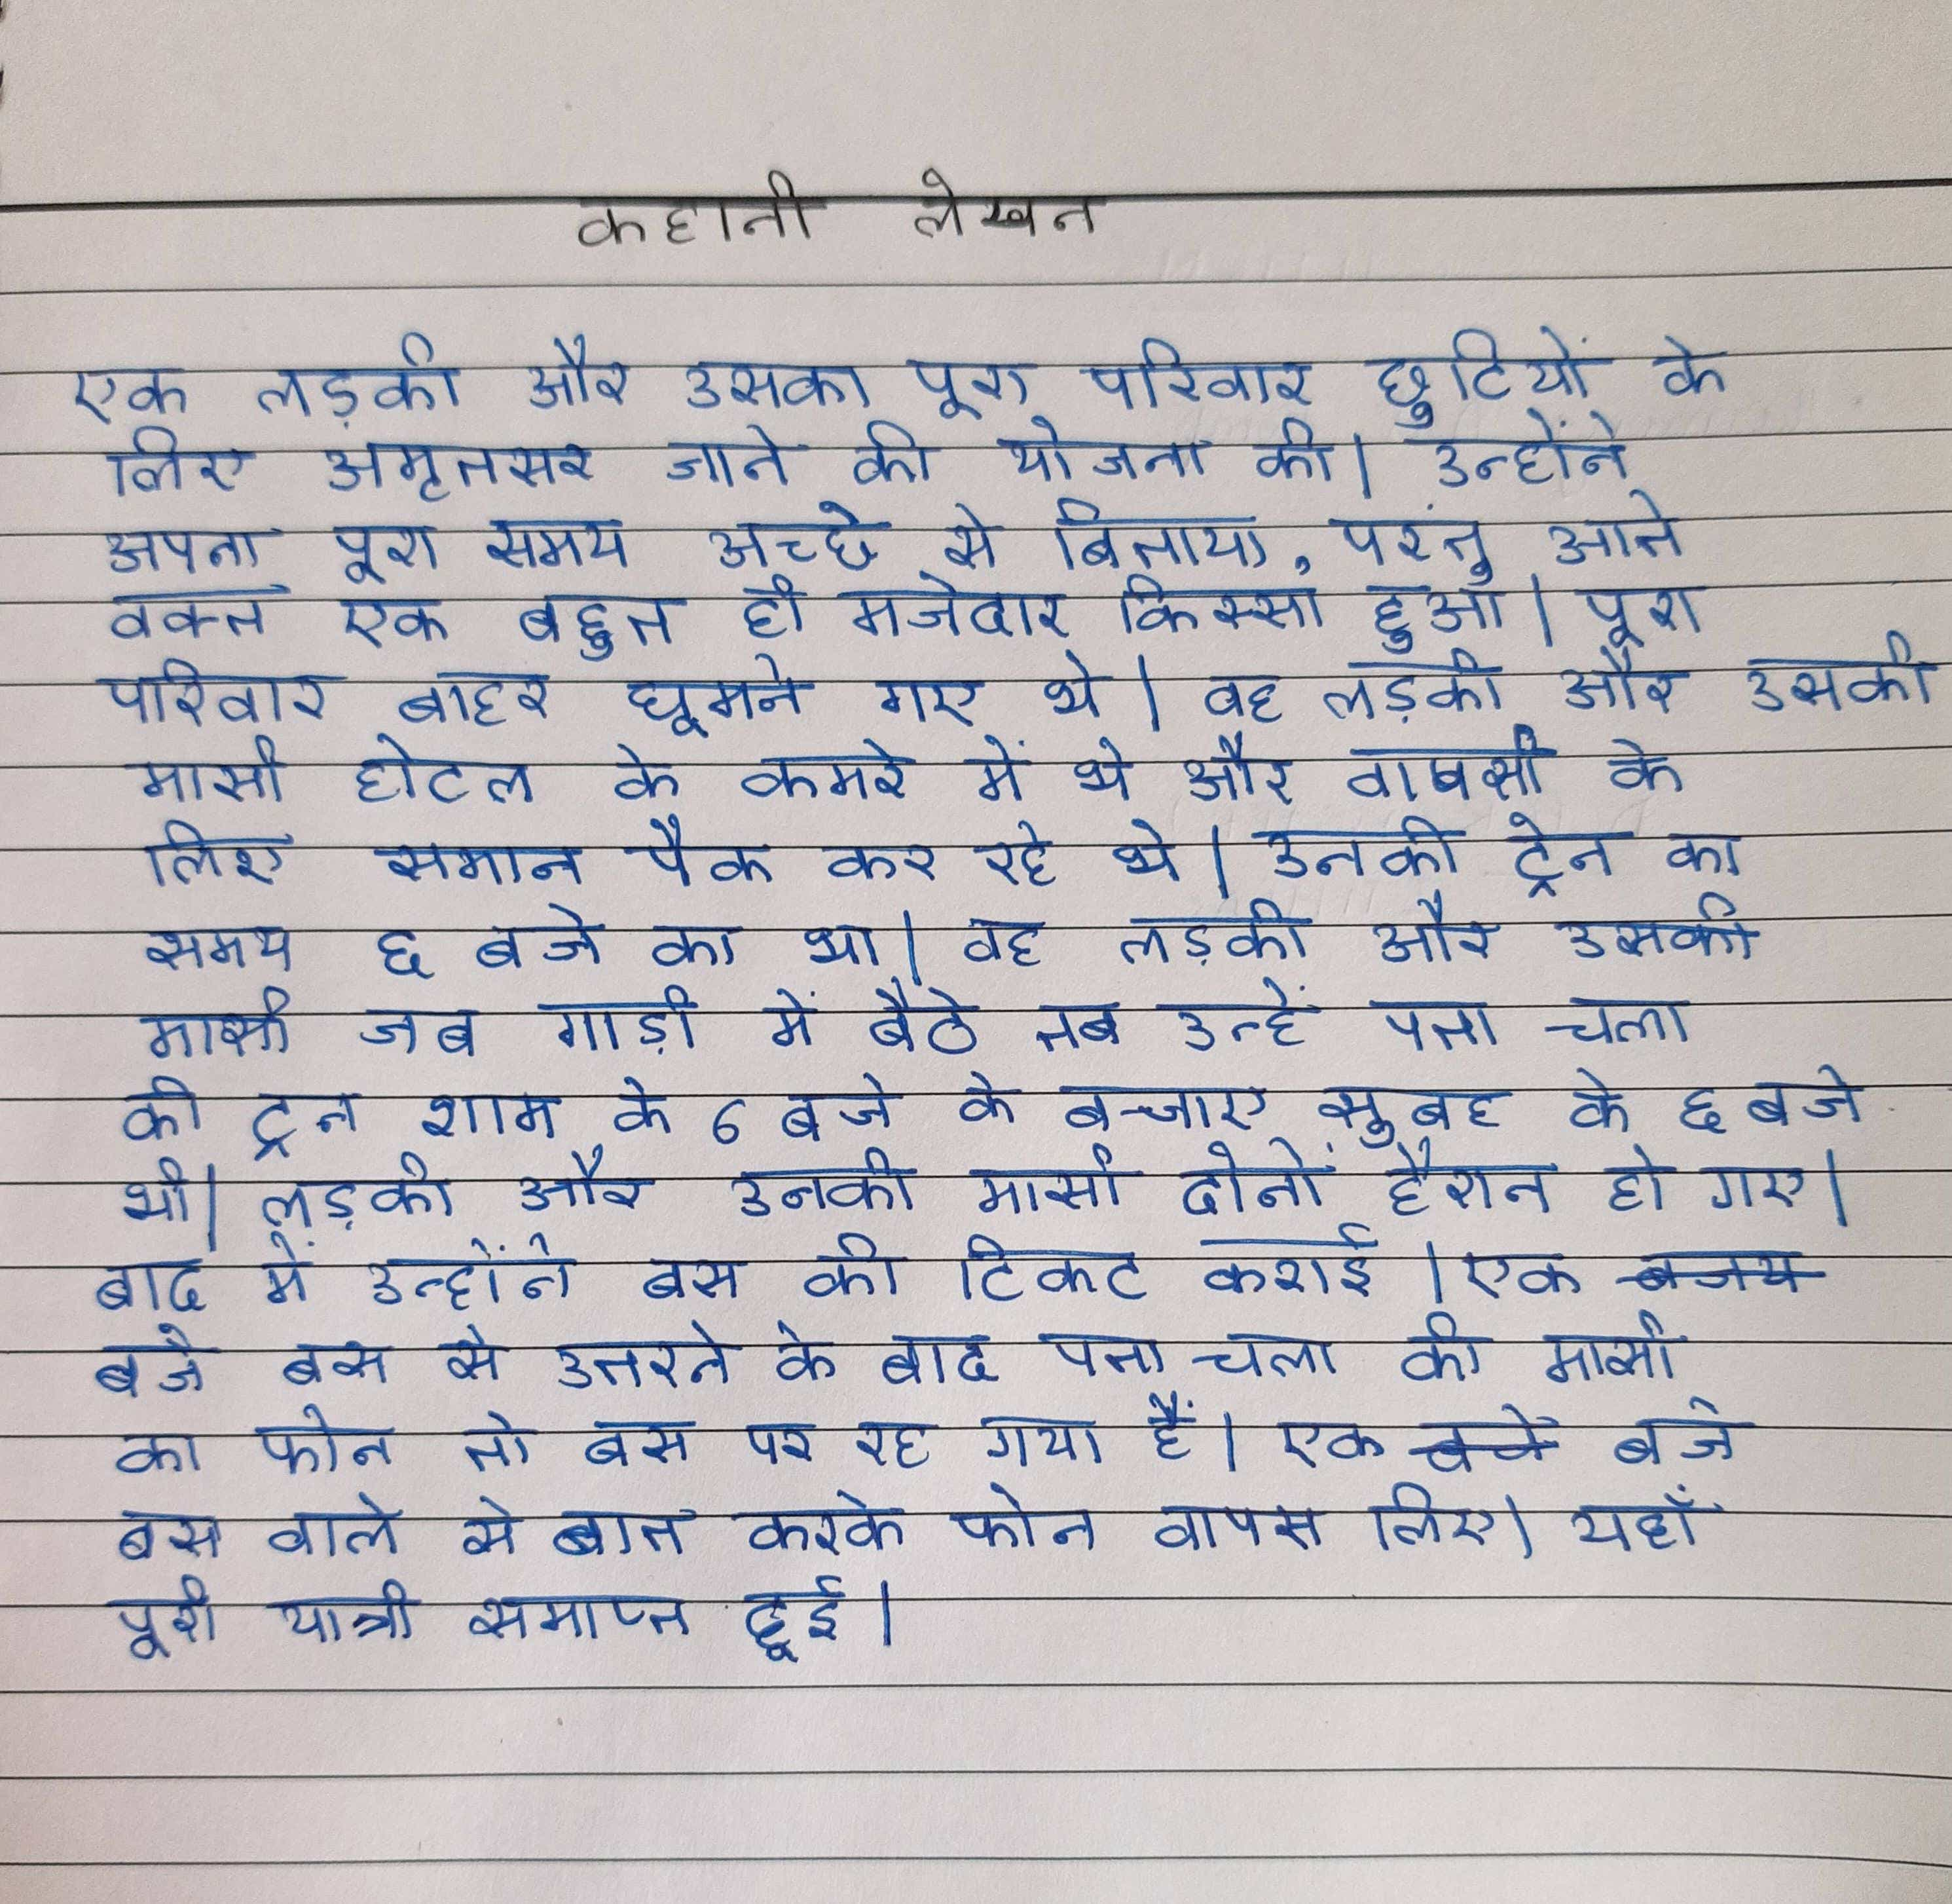 कहानी लेखन
एक लड़की और उसका पूरा परिवार छुटियों के
लिए अमृतसर जाने की योजना की। उन्होंने
अपना पूरा समय अच्छे से बिताया, परंतु आते
वक्त एक बहुत ही मजेदार किस्सा हुआ। पूरा
परिवार बाहर घूमने गए थे। वह लड़की और उसकी
मासी होटल के कमरे में थे और वापसी के
लिए समान पैक कर रहे थे। उनकी ट्रेन का
समय ६ बजे का था। वह लड़की और उसकी
मासी जब गाड़ी में बैठे तब उन्हें पता चला
की ट्रन शाम के 6 बजे के बजाए सुबह के ६ बजे
थी। लड़की और उनकी मासी दोनों हैरान हो गए।
बाद में उन्होंने बस की टिकट कराई। एक बजय
बजे बस से उतरने के बाद पता चला की मासी
का फोन तो बस पर रह गया हैं। एक बजे
बस वाले से बात करके फोन वापस लिए। यहाँ
पूरी यात्री समाप्त हूई।